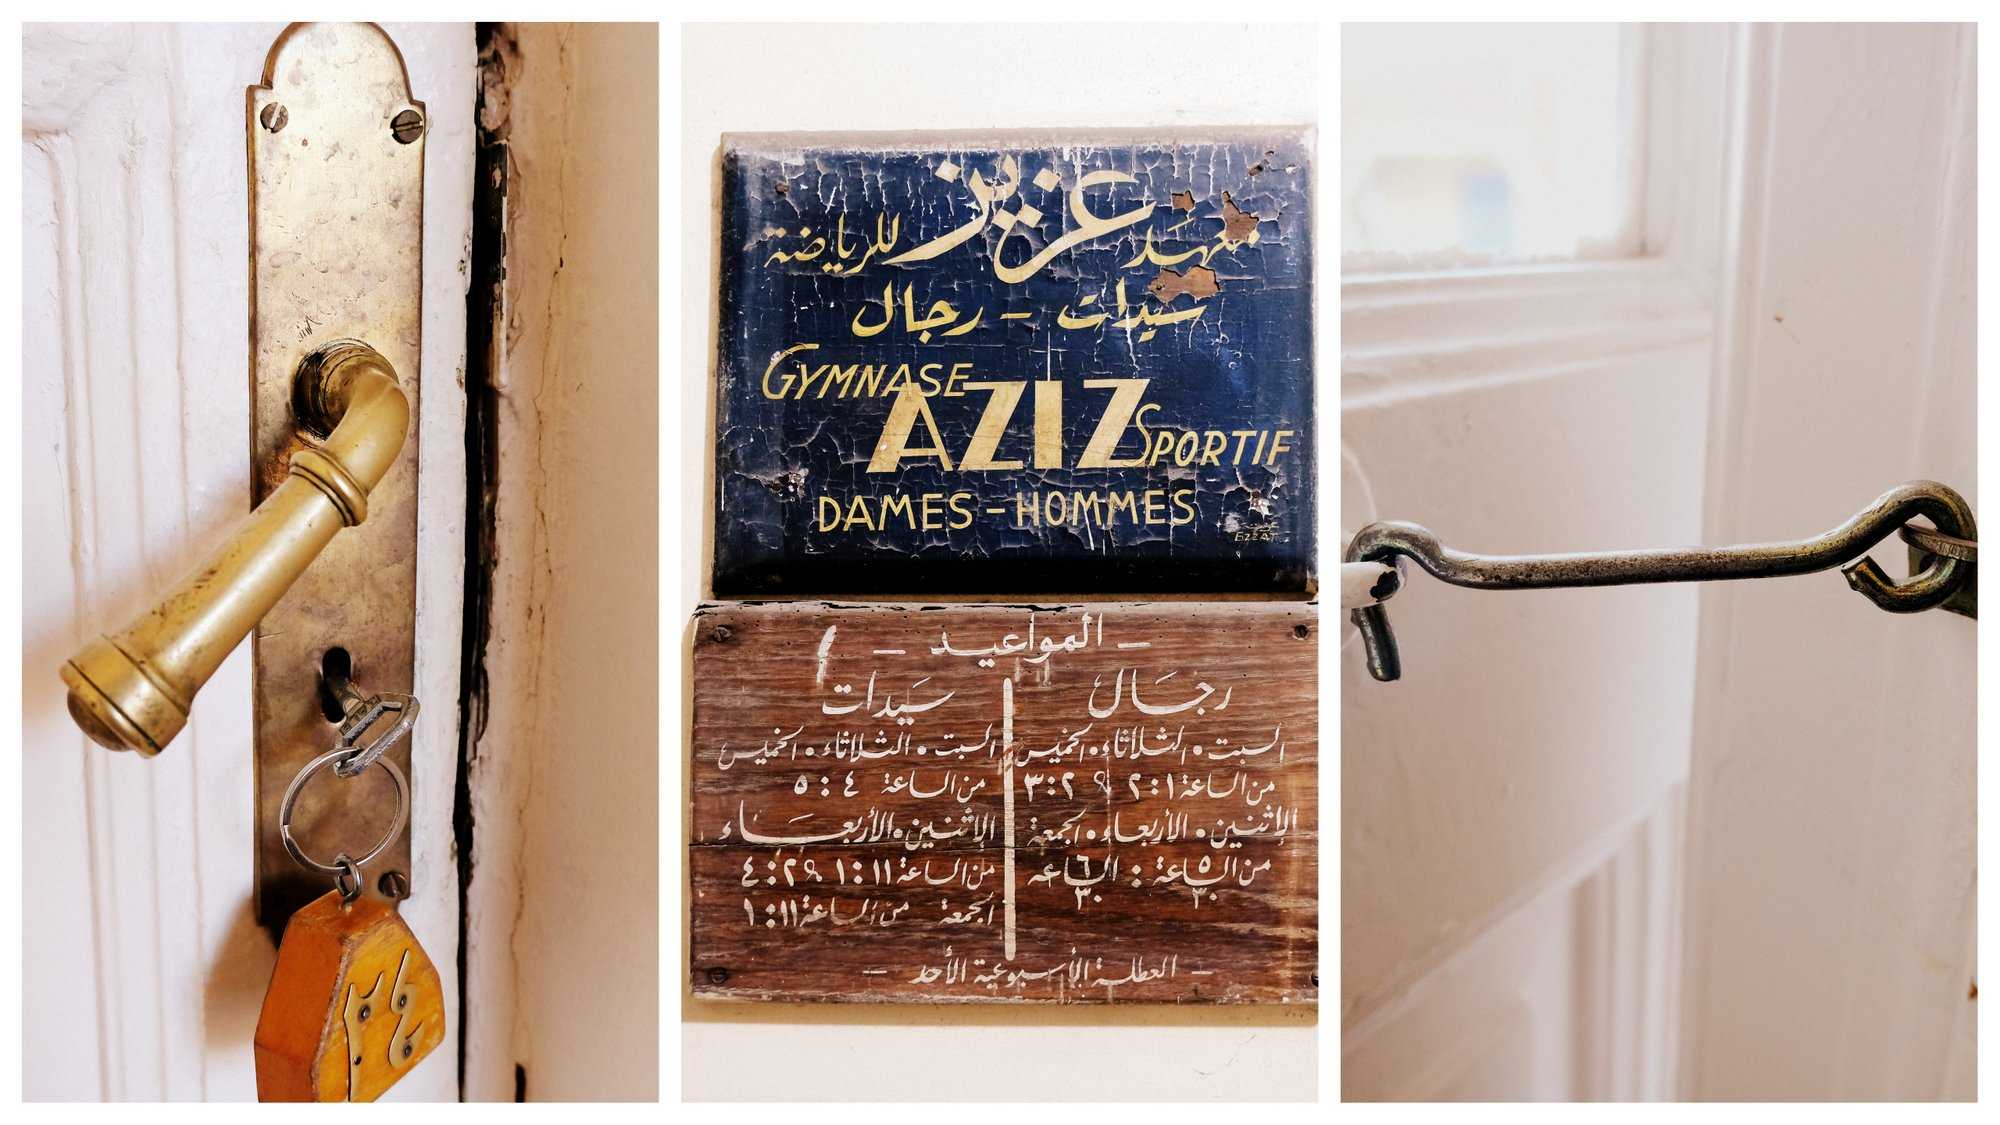 ٢٤
معهد عزيز للرياضة
سيدات - رجال
GYMNASE
AZIZ
SPORTIF
DAMES - HOMMES
عزت
EZZAT
- المواعيد -
رجال
السبت • الثلاثاء • الخميس
من الساعة ١ : ٢ & ٢ : ٣
الإثنين • الأربعاء • الجمعة
من الساعة ٥ ٣٠ : الساعه ٦ ٣٠
سيدات
السبت • الثلاثاء • الخميس
من الساعة ٤ : ٥
الإثنين • الأربعاء
من الساعة ١١ : ١ & ٢ : ٤
الجمعة من الساعة ١١ : ١
- العطلة الأسبوعية الأحد -